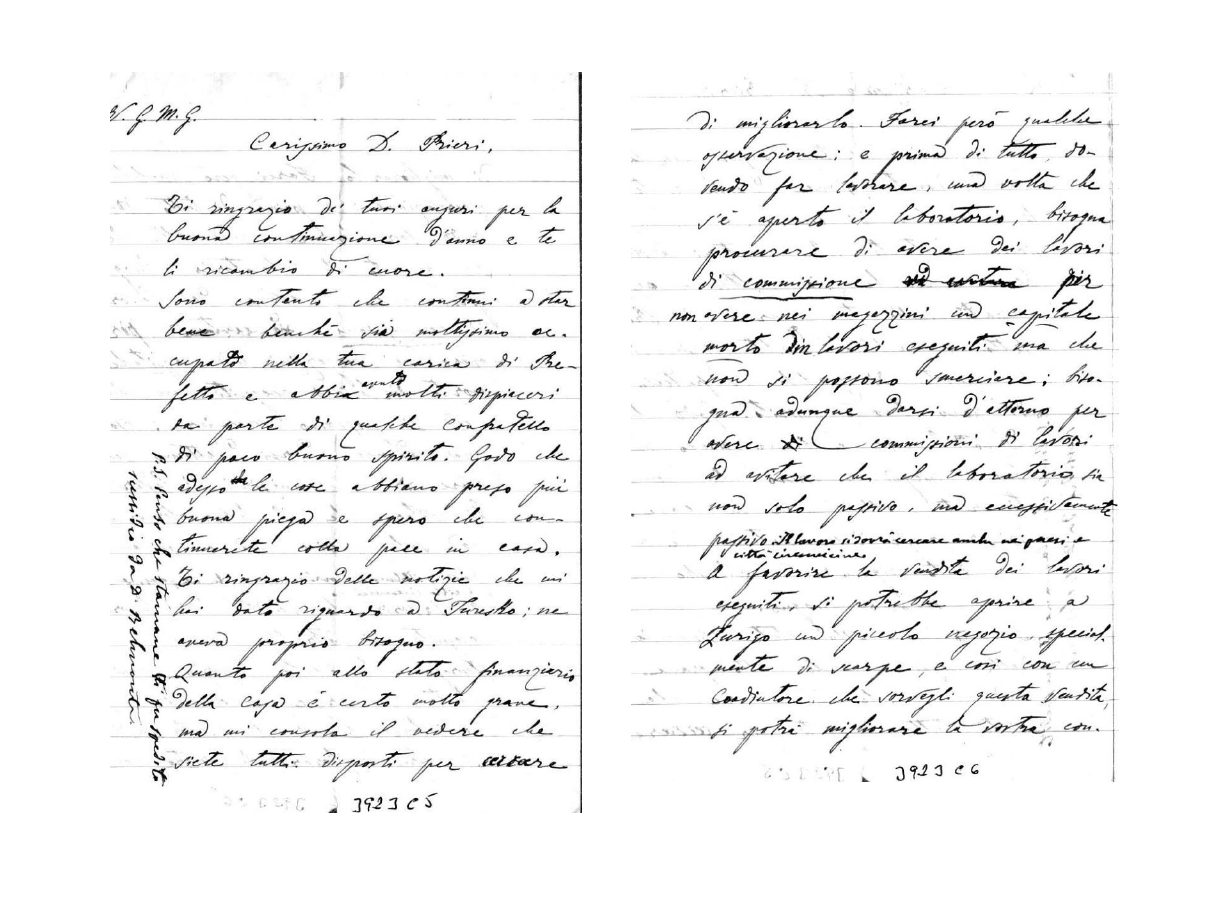 V. G. M. G.
Carissimo D. Prieri,
Ti ringrazio de' tuoi auguri per la
buona continuazione d'anno e te
li ricambio di cuore.
Sono contento che continui a star
bene benchè sia moltissimo oc-
cupato nella tua carica di Pre-
fetto e abbia avuto molti dispiaceri
da parte di qualche confratello
di poco buono spirito. Godo che
adesso le cose abbiano preso più
buona piega e spero che con-
tinuerete colla pace in casa.
Ti ringrazio delle notizie che mi
hai dato riguardo a ; ne
aveva proprio bisogno.
Quanto poi allo stato finanziario
della casa è certo molto grave,
ma mi consola il vedere che
siete tutti disposti per cercare
P.S. Penso che stamane ti fu spedito
sussidio da D. Belmonte.
3923 C 5
di migliorarlo. Farei però qualche
osservazione; e prima di tutto, do-
vendo far lavorare, una volta che
s'è aperto il laboratorio, bisogna
procurare di avere dei lavori
di commissione per
non avere nei magazzini un capitale
morto in lavori eseguiti ma che
non si possono smerciare; biso-
gna adunque darsi d'attorno per
avere commissioni di lavori
ad evitare che il laboratorio sia
non solo passivo, ma eccessivamente
passivo. Il lavoro si dovrà cercare anche nei paesi e
città circonvicine.
A favorire la vendita dei lavori
eseguiti, si potrebbe aprire a
Zurigo un piccolo negozio special-
mente di scarpe, e così con un
Coadiutore che sorvegli questa vendita,
si potrà migliorare la vostra con-
3923 C 6